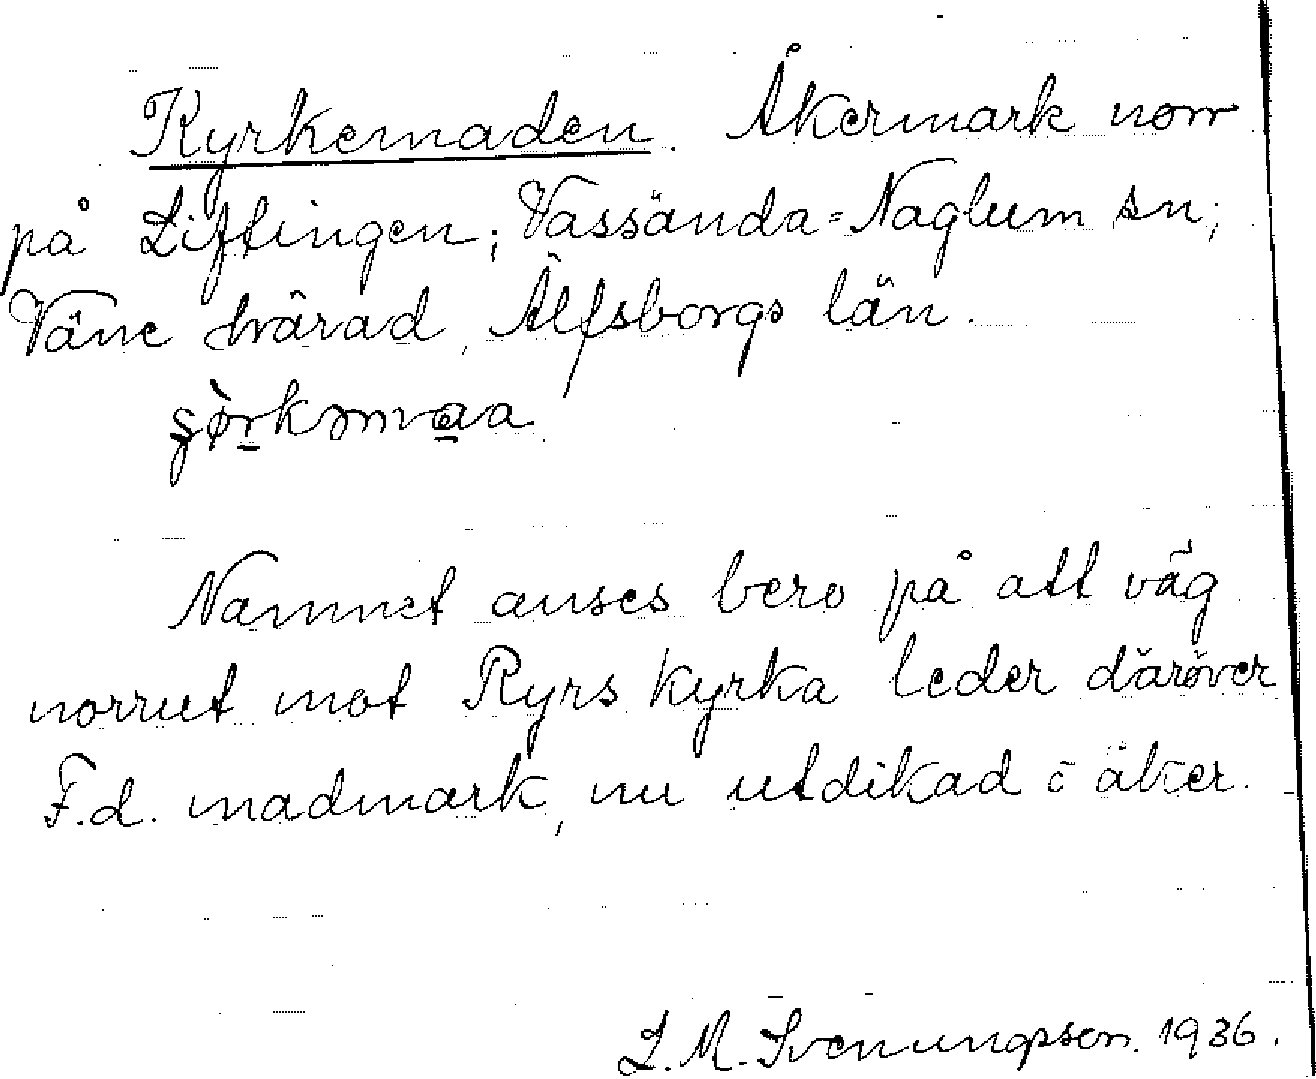 Kyrkemaden. Åkermark norr
på Liffingen; Vassända-Naglum sn;
Väne härad, Älfsborgs län.
Namnet anses bero på att väg
norrut mot Ryrs kyrka leder däröver
F.d. madmark, nu utdikad o åker.
L. M. Svenungsson. 1936.